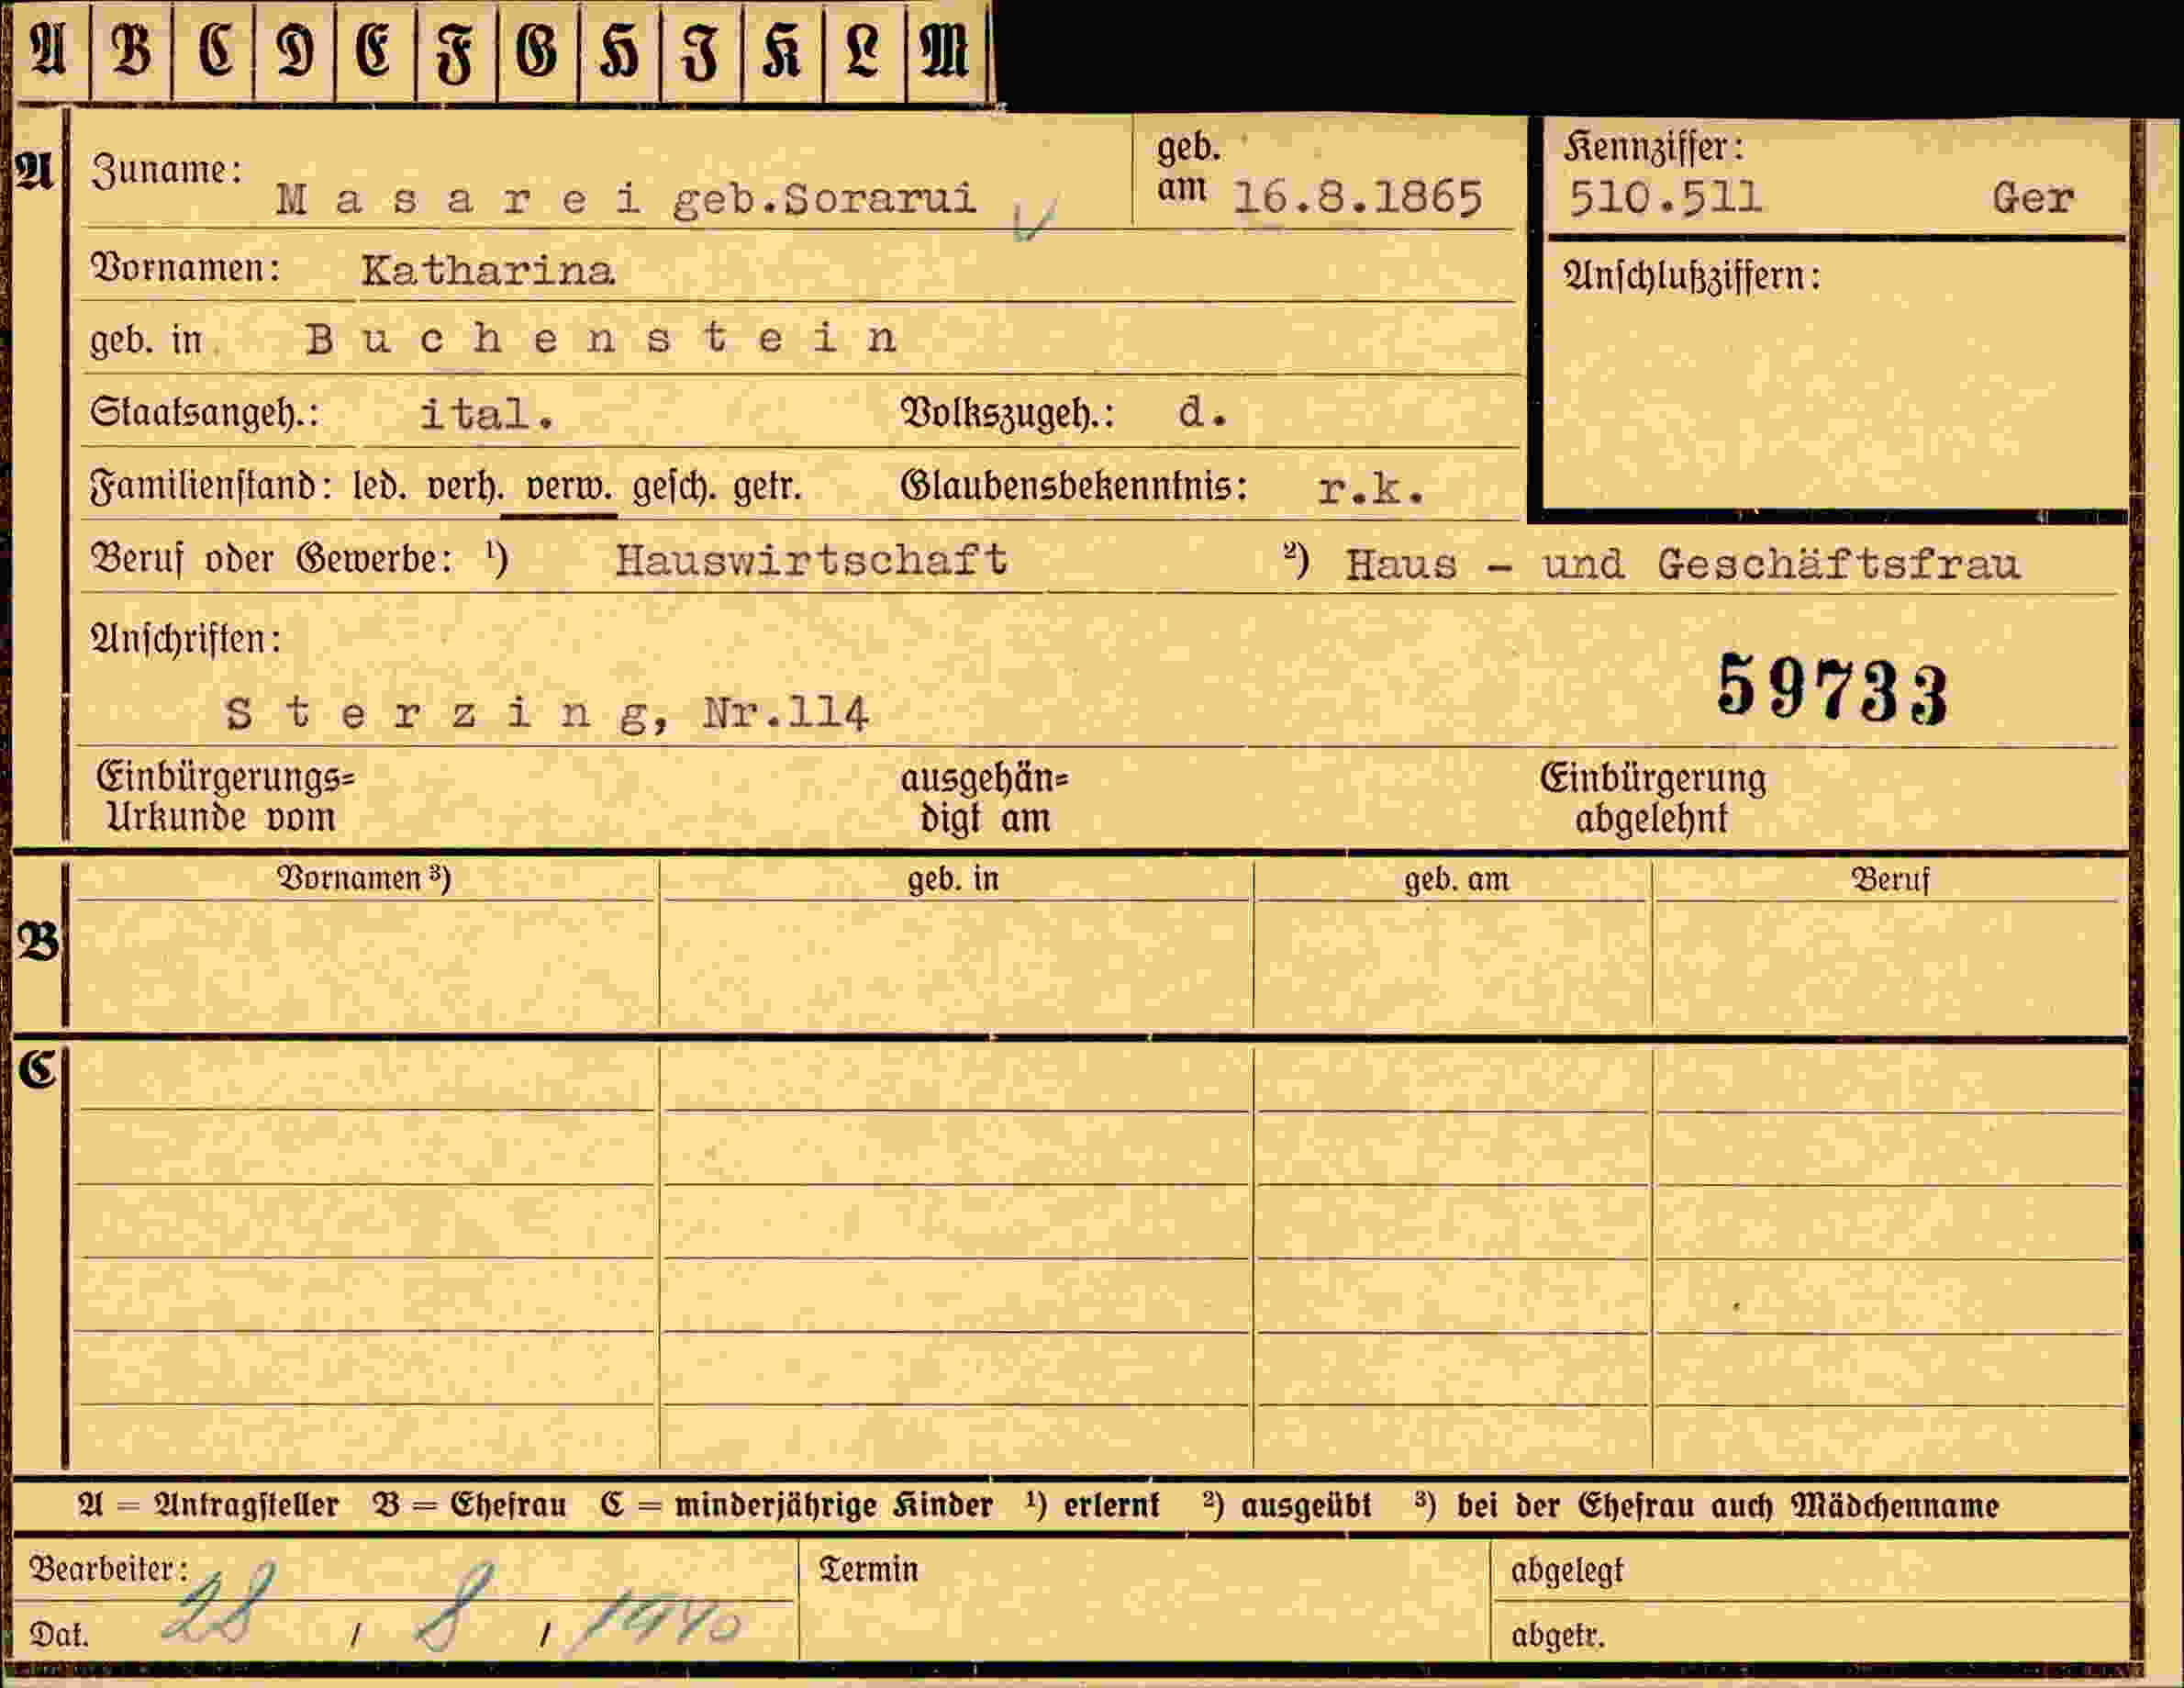 A B C D E F G H J K L M
A Zuname: Masarei geb.Sorarui geb. am 16.8.1865
Kennziffer: 510.511 Ger
Vornamen: Katharina
Anschlußziffern:
geb. in Buchenstein
Staatsangeh.: ital. Volkszugeh.: d.
Familienstand: led. verh. verw. gesch. getr. Glaubensbekenntnis: r.k.
Beruf oder Gewerbe: ¹) Hauswirtschaft ²) Haus - und Geschäftsfrau
Anschriften:
59733
Sterzing, Nr.114
Einbürgerungs= ausgehän= Einbürgerung
Urkunde vom digt am abgelehnt
Vornamen ³) geb. in geb. am Beruf
B
C
A = Antragsteller B = Ehefrau C = minderjährige Kinder ¹) erlernt ²) ausgeübt ³) bei der Ehefrau auch Mädchenname
Bearbeiter: Termin abgelegt
Dat. 28 / 8 / 1940 abgetr.